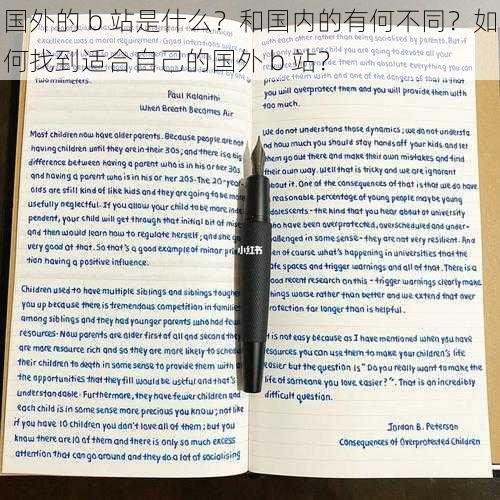 国外的 b 站是什么？和国内的有何不同？如
何找到适合自己的国外 b 站？
two millimeters.
Paul Kalanithi
When Breath Becomes Air
Most children now have older parents. Because people are not
having children until they are in their 30s, and there is a big
difference between having a parent who is in his or her 30s
and having a parent who is in his or her 20s. The 20-year
olds are still kind of like kids and they are going to be more
usefully neglectful. If you allow your child to be more in
pendent, your child will get through that initial bit of mise
and then would learn how to regulate herself; and she ge
very good at that. So that's a good example of minor pr
tion having a positive influence.
Children used to have multiple siblings and siblings tough
you up because there is tremendous competition in famili
among siblings and they had younger parents who had
resources. Now parents are older first of all and second they
are more resource rich and so they are more likely to sche
their children to death in some sense to provide them with
the opportunities that they fill would be useful and that's
understandable. Furthermore, they have fewer children and
each child is in some sense more precious you know; not l
if you have 10 children you don't love all of them; but you
know there are 10 of them and there is only so much
attention that can go around and they do a lot of socialising
with each other rather than being socialised by parents. But
you will overprotect them and you will provide them with
too much.
We do not understand those dynamics; we do not understa
nd how much you should stay hands off your kids and let
them go out there and make their own mistakes and find
their own way. Well that is tricky and we are ignorant
about it. One of the consequences of that is that we do have
reasonable percentage of young people may be young
adolescents - the kind that you hear about at university
who have been overprotected, overscheduled and under-
challenged in some sense - they are not very resilient. And
of course what's happening in universities that the
safe spaces and trigger warnings and all of that. There is a
good research document on this - trigger warnings clearly make
things worse rather than better and we extend that over
protection for longer than is helpful.
It is not easy because as I have mentioned when you have
resources you can use them to make your children's life
easier but the question is "Do you really want to make the
life of someone you love easier?" That is an incredibly
difficult question.
Jordan B. Peterson
Consequences of Overprotected Children
小红书